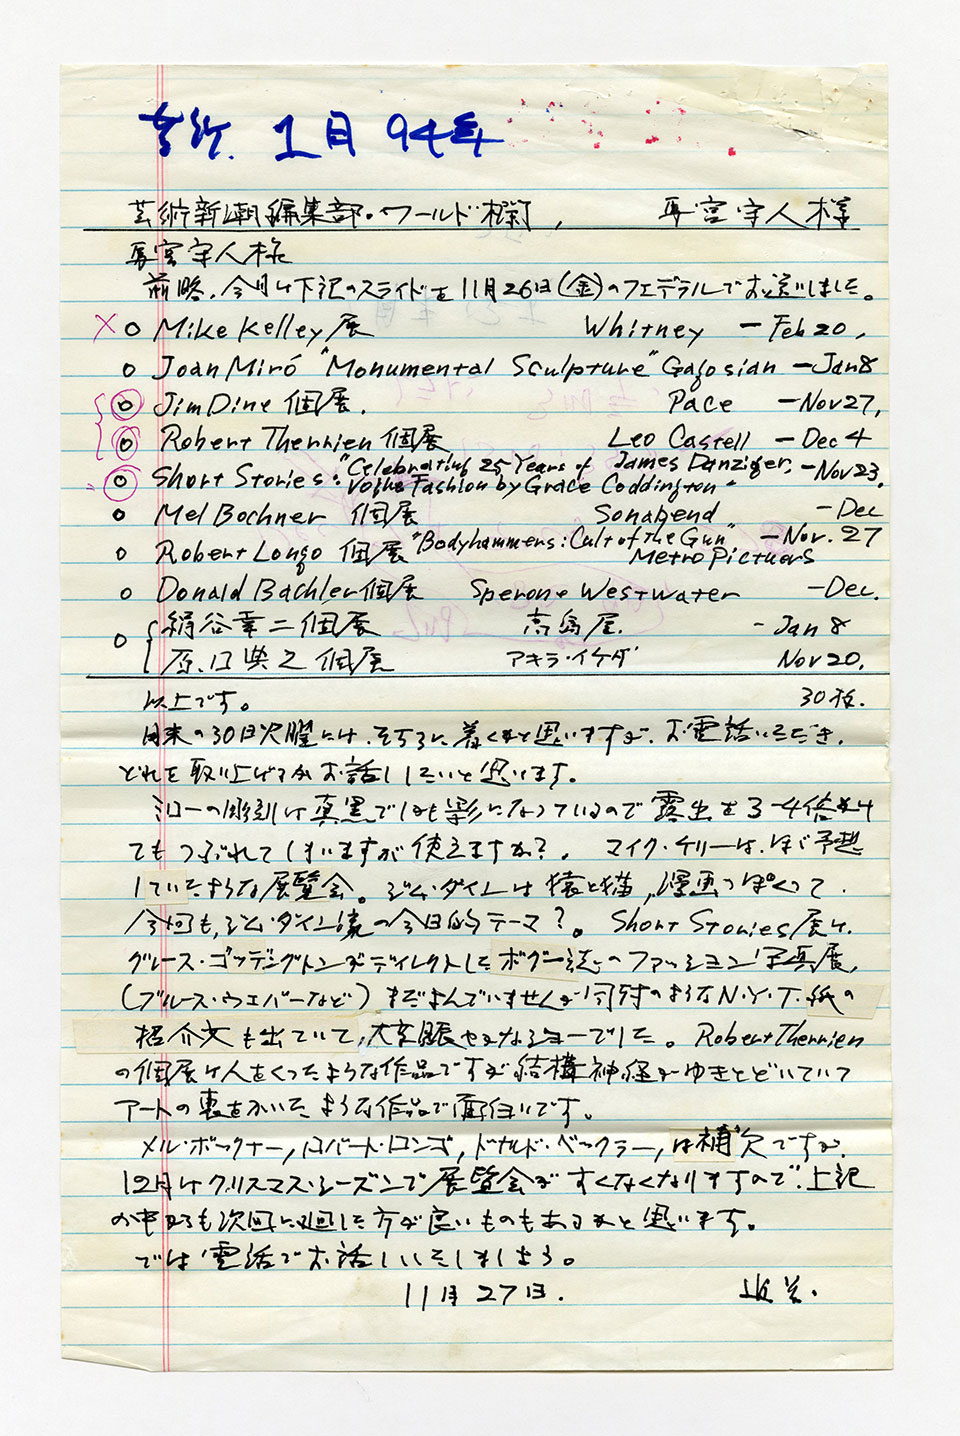 芸新. 1月 94年
芸術新潮編集部・ワールド欄, 馬宮守人様
馬宮守人様
前略.今月は下記のスライドを11月26日(金)のフェデラルでお送りしました。
× ○ Mike Kelley 展 Whitney – Feb 20,
○ Joan Miró "Monumental Sculpture" Gagosian – Jan 8
○ Jim Dine 個展. Pace – Nov 27,
○ Robert Therrien 個展 Leo Castell – Dec 4
○ Short Stories: "Celebrating 25 Years of Vogue Fashion by Grace Coddington" James Danziger, – Nov 23,
○ Mel Bochner 個展 Sonabend – Dec
○ Robert Longo 個展 "Bodyhammers: Cult of The Gun" Metro Pictuers – Nov. 27
○ Donald Bachler 個展 Sperone Westwater – Dec.
○ 絹谷幸二個展 高島屋. - Jan 8
原口典之個展 アキラ・イケダ Nov 20,
以上です。 30枚.
月末の30日火曜には、そちらに着くかと思いますが、お電話いただき、
どれを取り上げるかお話ししたいと思います。
ミローの彫刻は真黒でしかも影になっているので露出を3-4倍かけ
てもつぶれてしまいますが使えますか?。 マイク・ケリーは、ほぼ予想
していたような展覧会。ジム・ダインは猿と猫,漫画っぽくって.
今何も,ジム・ダイン流の今日的テーマ?。 Short Stories 展は.
グレース・コッディングトンがディレクトしたボグー誌のファッション写真展,
(ブルース・ウエバーなど)まだよんでいませんが同封のようなN.Y.T.紙の
紹介文も出ていて,大変賑やかなショーでした。 Robert Therrien
の個展は人をくったような作品ですが結構神経がゆきとどいていて
アートの裏をかいたような作品で面白いです。
メル・ボックナー, ロバート・ロンゴ, ドナルド・ベックラー, は補欠ですが.
12月はクリスマス・シーズンで展覧会がすくなくなりますので.上記
の中からも次回に廻した方が良いものもあるかと思います。
では電話でお話しいたしましょう。
11月27日.